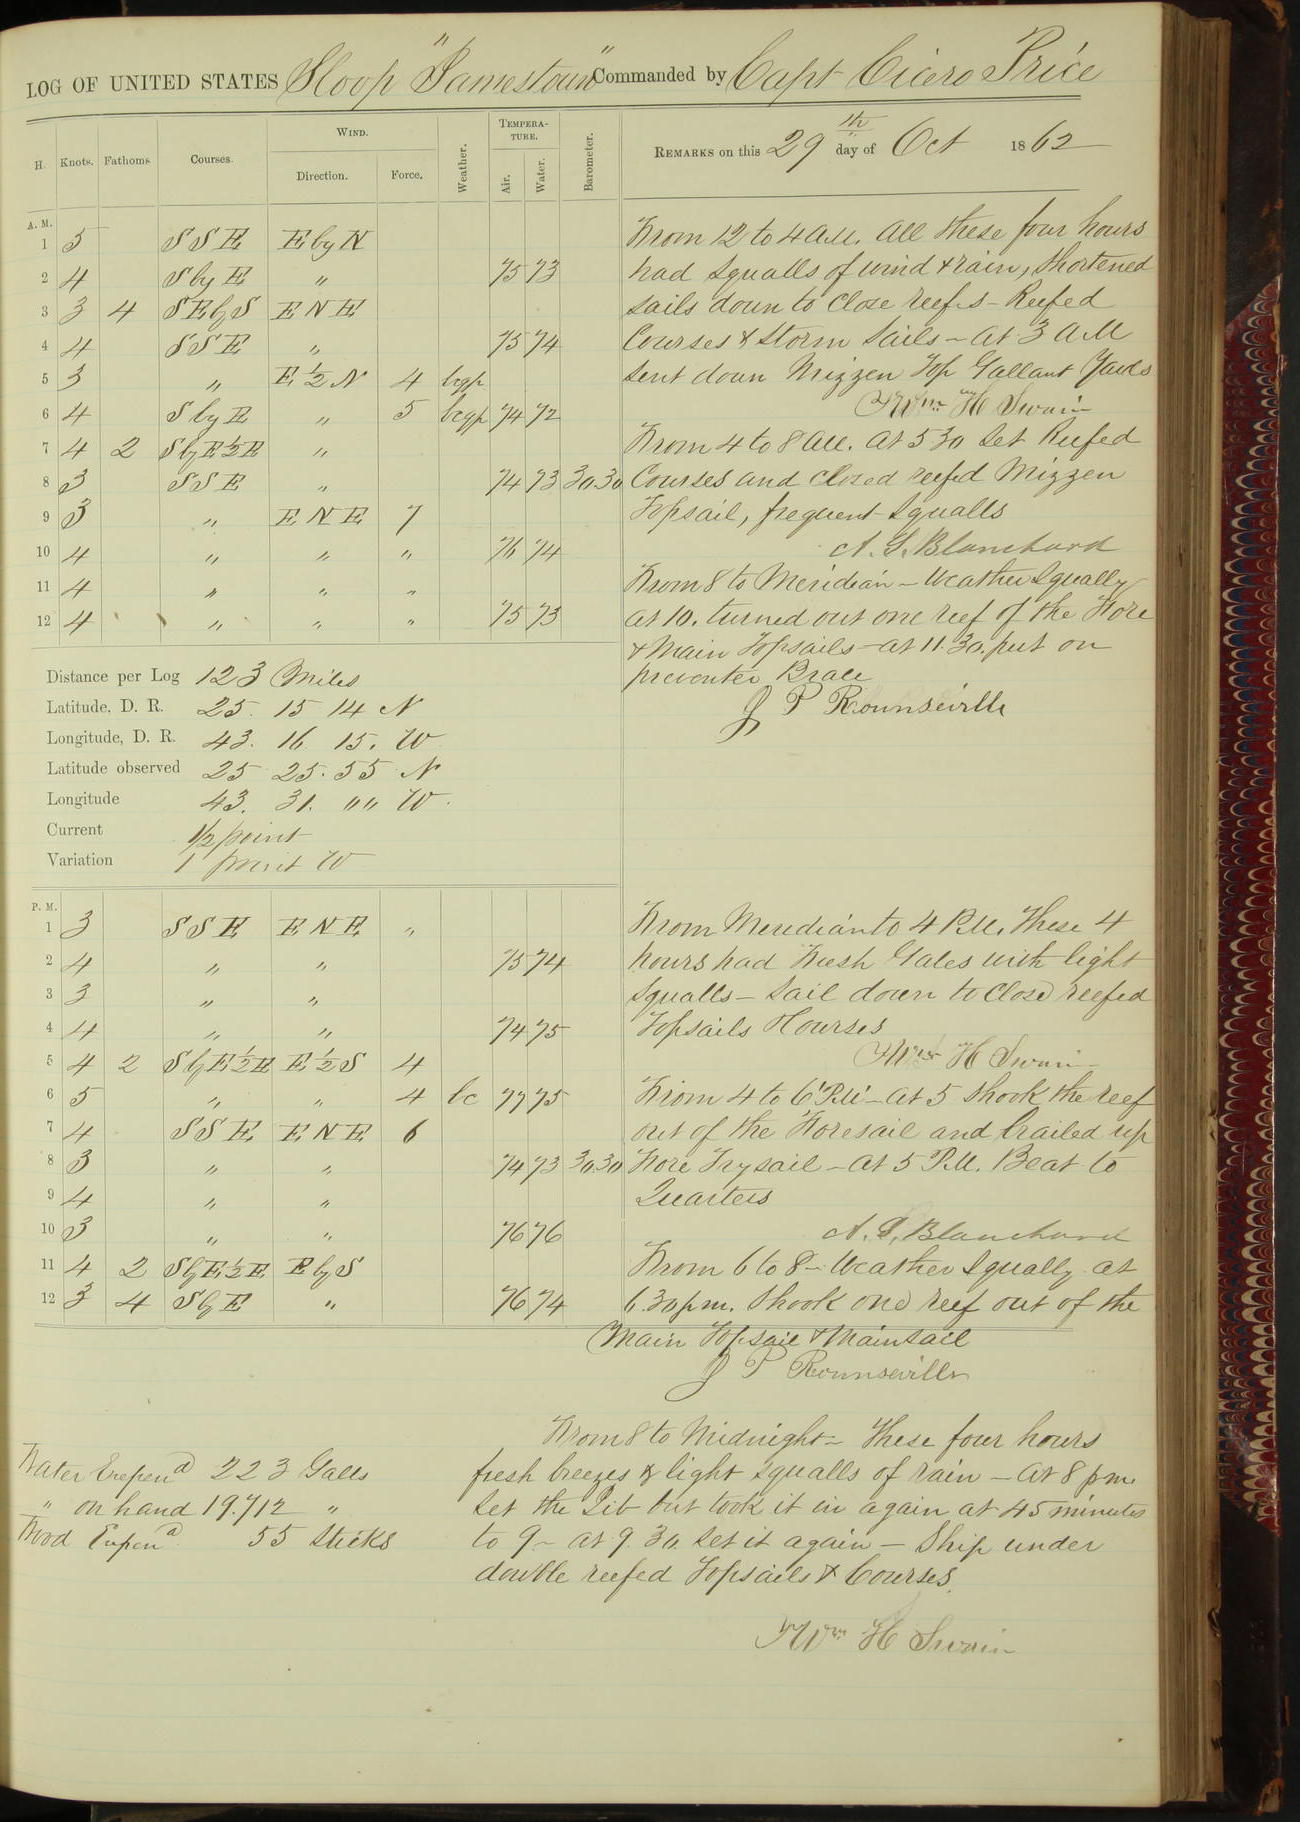 LOG OF UNITED STATES Sloop "Jamestown" Commanded by Capt Cicero Price
H. Knots. Fathoms Courses. WIND. Direction. Force. Weather. TEMPERATURE. Air. Water. Barometer. REMARKS on this 29th day of Oct 1862
A. M.
1 5 SSE E by N
2 4 S by E " 75 73
3 3 4 SE by S ENE
4 4 SSE " 75 74
5 3 " E ½ N 4 bcqp
6 4 S by E " 5 bcqp 74 72
7 4 2 S by E ½ E "
8 3 SSE " 74 73 30.30
9 3 " ENE 7
10 4 " " " 76 74
11 4 " " "
12 4 " " " 75 73
From 12 to 4 A.M. All these four hours
had squalls of wind & rain, shortened
sails down to close reefs – Reefed
Courses & Storm Sails – At 3 AM
sent down Mizzen Top Gallant Yards
Wm H Swain
From 4 to 8 A.M. At 5 30 set Reefed
Courses and closed reefed Mizzen
Topsail, frequent squalls
A. S. Blanchard
From 8 to Meridian – Weather Squally
at 10. turned out one reef of the Fore
& Main Topsails – at 11.30. put on
preventer Brace
J P Rounseville
Distance per Log 123 Miles
Latitude, D. R. 25. 15 14 N
Longitude, D. R. 43. 16 15. W
Latitude observed 25 25. 55 N
Longitude 43. 31. "" W.
Current ½ point
Variation 1 point W
P. M.
1 3 SSE ENE "
2 4 " " 75 74
3 3 " "
4 4 " " 74 75
5 4 2 S by E ½ E E ½ S 4
6 5 " " 4 bc 77 75
7 4 SSE ENE 6
8 3 " " 74 73 30.30
9 4 " "
10 3 " " 76 76
11 4 2 S by E ½ E E by S
12 3 4 S by E " 76 74
From Meridian to 4 P.M. These 4
hours had Fresh Gales with light
squalls – Sail down to Closed reefed
Topsails & Courses
Wm H Swain
From 4 to 6 P.M. – At 5 shook the reef
out of the Foresail and brailed up
Fore Trysail – At 5 P.M. Beat to
Quarters
A. S. Blanchard
From 6 to 8 – Weather Squally at
6.30 p.m. Shook one reef out of the
Main Topsail & Mainsail
J P Rounseville
From 8 to Midnight – These four hours
fresh breezes & light squalls of rain – At 8 p m
set the Jib but took it in again at 45 minutes
to 9 – at 9.30. set it again – Ship under
double reefed Topsails & Courses.
Wm H Swain
Water Expend 223 Galls
" on hand 19.712 "
Wood Expend 55 Sticks